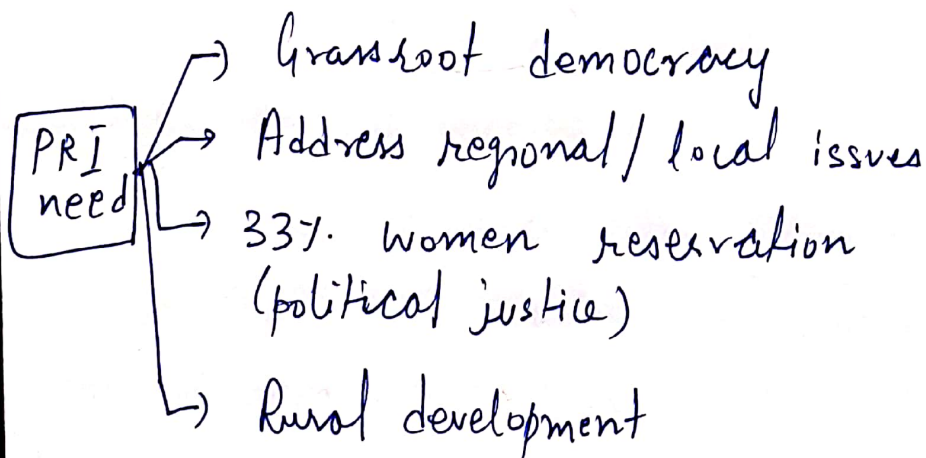 PRI
need
→ Grassroot democracy
→ Address regional/local issues
→ 33% women reservation
(political justice)
→ Rural development